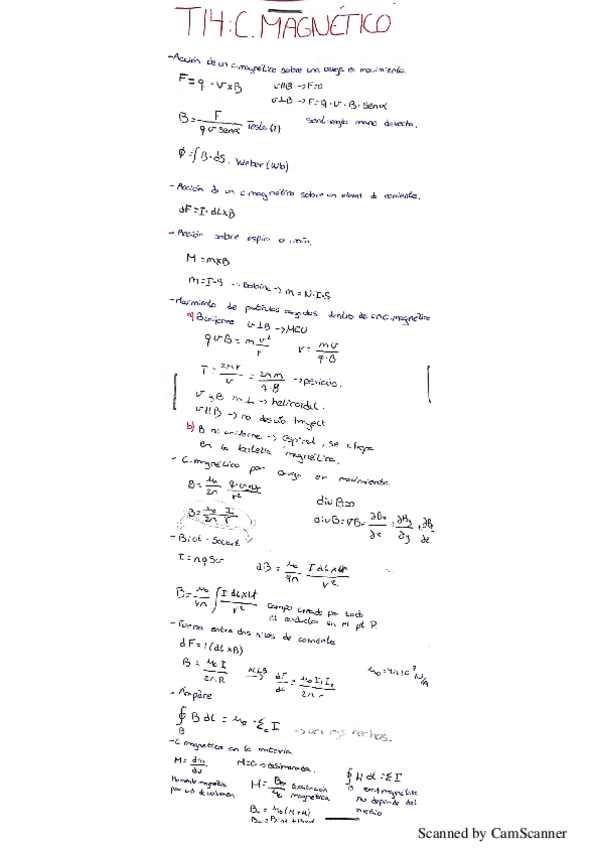 T14: C. MAGNÉTICO
- Acción de un c. magnético sobre una carga en movimiento.
F = q · v x B
v∥B → F=0
v⊥B → F = q · v · B · senα
B = F / q v senα Tesla (T)
sent. regla mano derecha.
Φ = ∫ B · dS. Weber (Wb)
- Acción de un c. magnético sobre un element de corriente.
dF = I · dL x B
- Acción sobre espira o imán.
M = m x B
m = I · S → Bobina → m = N · I · S
- Movimiento de partículas cargadas dentro de c. magnético
a) B uniforme v⊥B → MCU
q v B = m v² / r
r = m v / q · B
T = 2πr / v = 2πm / q · B → periodo.
v y B → helicoidal.
v∥B → no desvía trayect
b) B no uniforme → espiral, se
en la botella magnética.
- C. magnético por carga en movimiento
div B = 0
div B = ∇B = ∂Bx/∂x + ∂By/∂y + ∂B/∂z
- Biot - Savart
I = n q S v
dB = μ₀/4π I dL x ur / r²
B = μ₀/4π ∫ I dL x ur / r²
Campo creado por todo
el conductor en el pt P.
- Fuerza entre dos hilos de corriente
dF = I (dL x B)
B = μ₀ I / 2π · R
dF/dL = μ₀ I₁ I₂ / 2π R
μ₀ = 4π·10⁻⁷ N/A
- Ampère
∮ B dL = μ₀ · Σ I
B
- C. magnético en la materia
M = dm / dv
M=0 → desimanada.
∮ H dL = Σ I
Momento magnético
por ud de volumen
magnética
no depende del
medio
Scanned by CamScanner